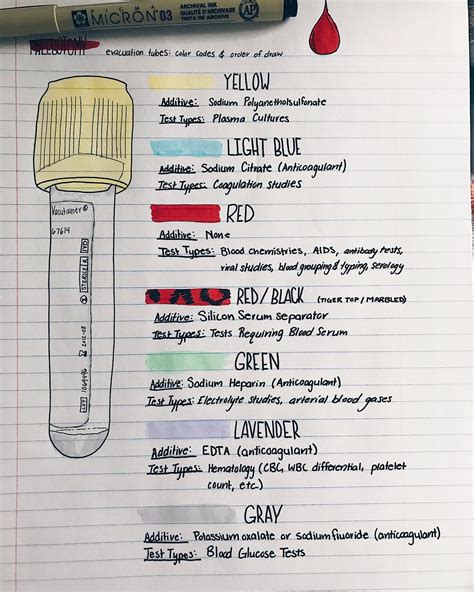 SIGMA
MICRON® 03
ARCHIVAL INK
QUALITÉ D'ARCHIVAGE
TINTA DE ARCHIVO
AP
PHLEBOTOMY
evacuation tubes: color codes & order of draw
YELLOW
Additive: Sodium Polyanetholsulfonate
Test Types: Plasma Cultures
LIGHT BLUE
Additive: Sodium Citrate (Anticoagulant)
Test Types: Coagulation studies
RED
Additive: None
Test Types: Blood chemistries, AIDS, antibody tests,
viral studies, blood grouping & typing, serology
RED/BLACK (TIGER TOP / MARBLED)
Additive: Silicon Serum separator
Test Types: Tests Requiring Blood Serum
GREEN
Additive: Sodium Heparin (Anticoagulant)
Test Types: Electrolyte studies, arterial blood gases
LAVENDER
Additive: EDTA (anticoagulant)
Test Types: Hematology (CBC, WBC differential, platelet
count, etc.)
GRAY
Additive: Potassium oxalate or sodium fluoride (anticoagulant)
Test Types: Blood Glucose Tests
Vacutainer®
67614
STERILE R
IVD
2012-08
LOT